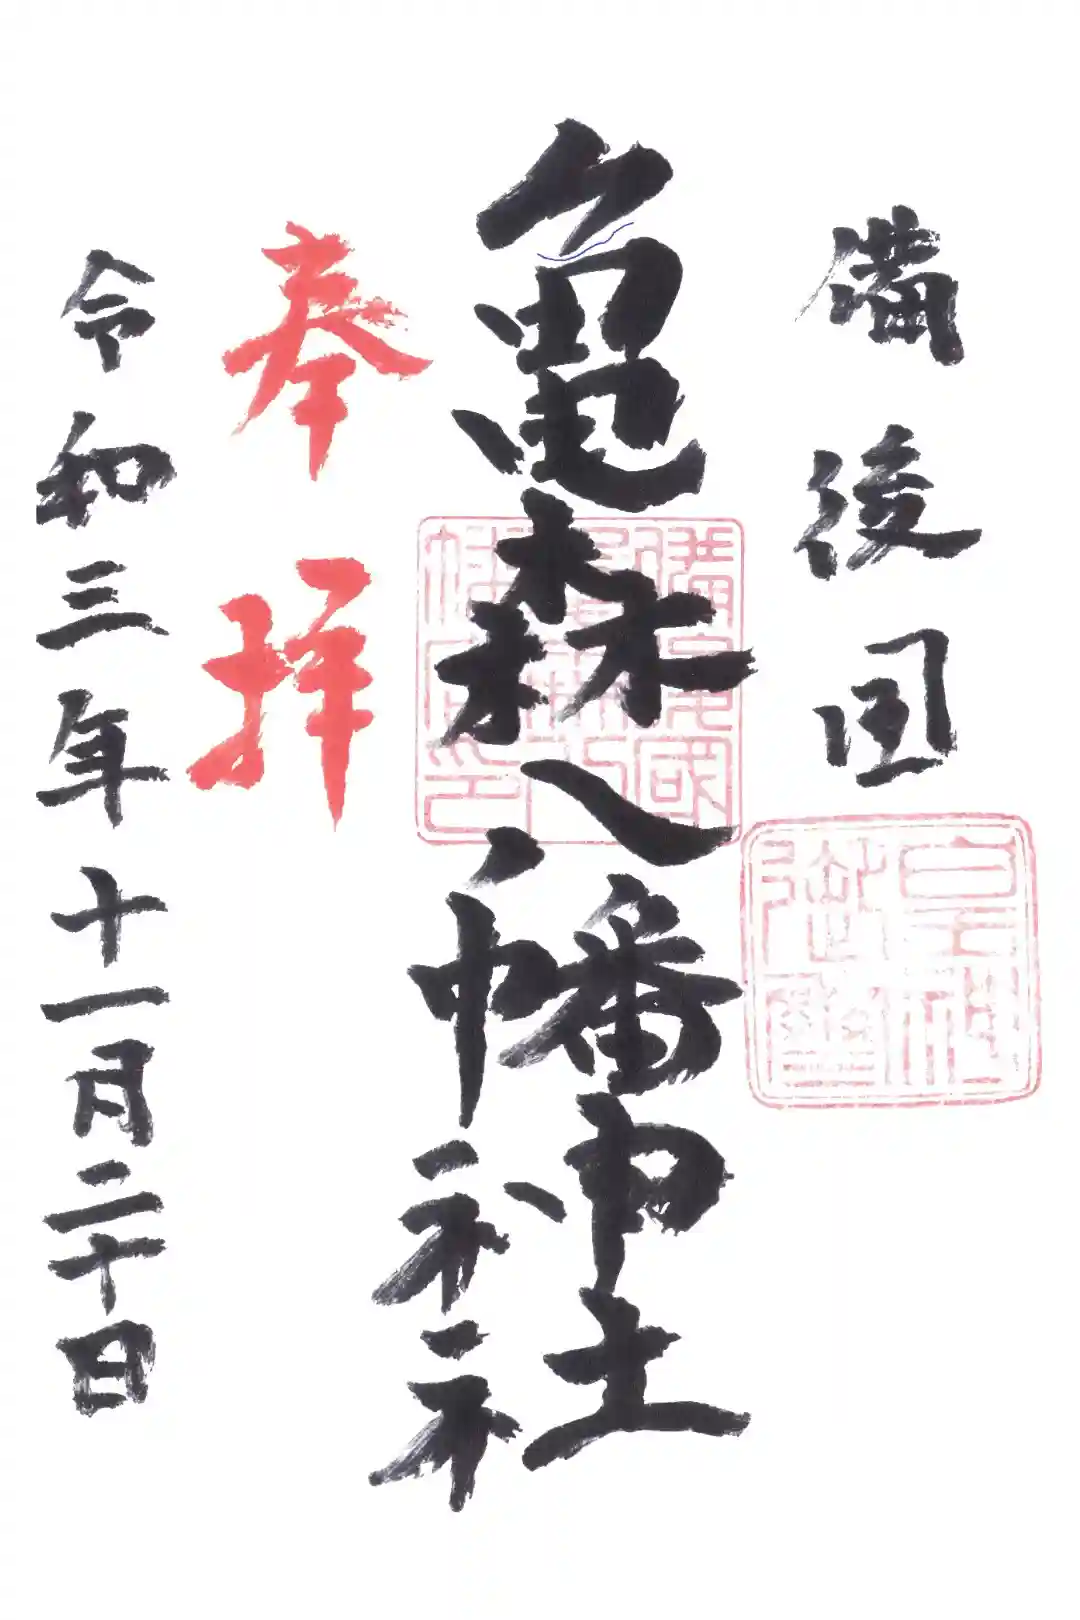 備後国
亀森八幡神社
奉拝
令和三年十一月二十日